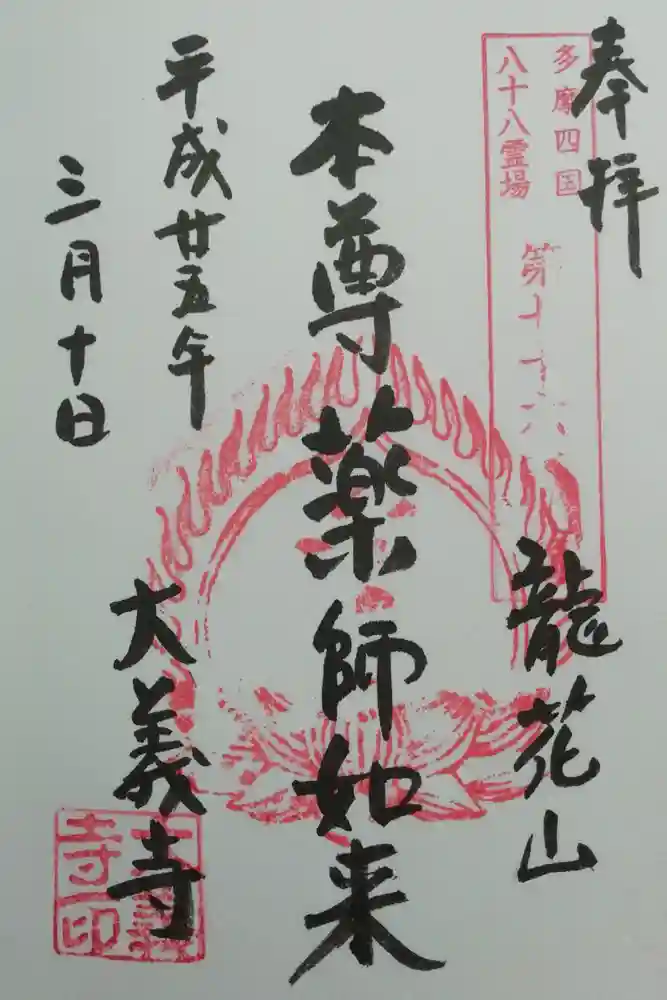 奉拝
多摩四国
八十八霊場
第十六
龍花山
本尊薬師如来
平成廿五年
三月十日
大義寺
大義
寺印